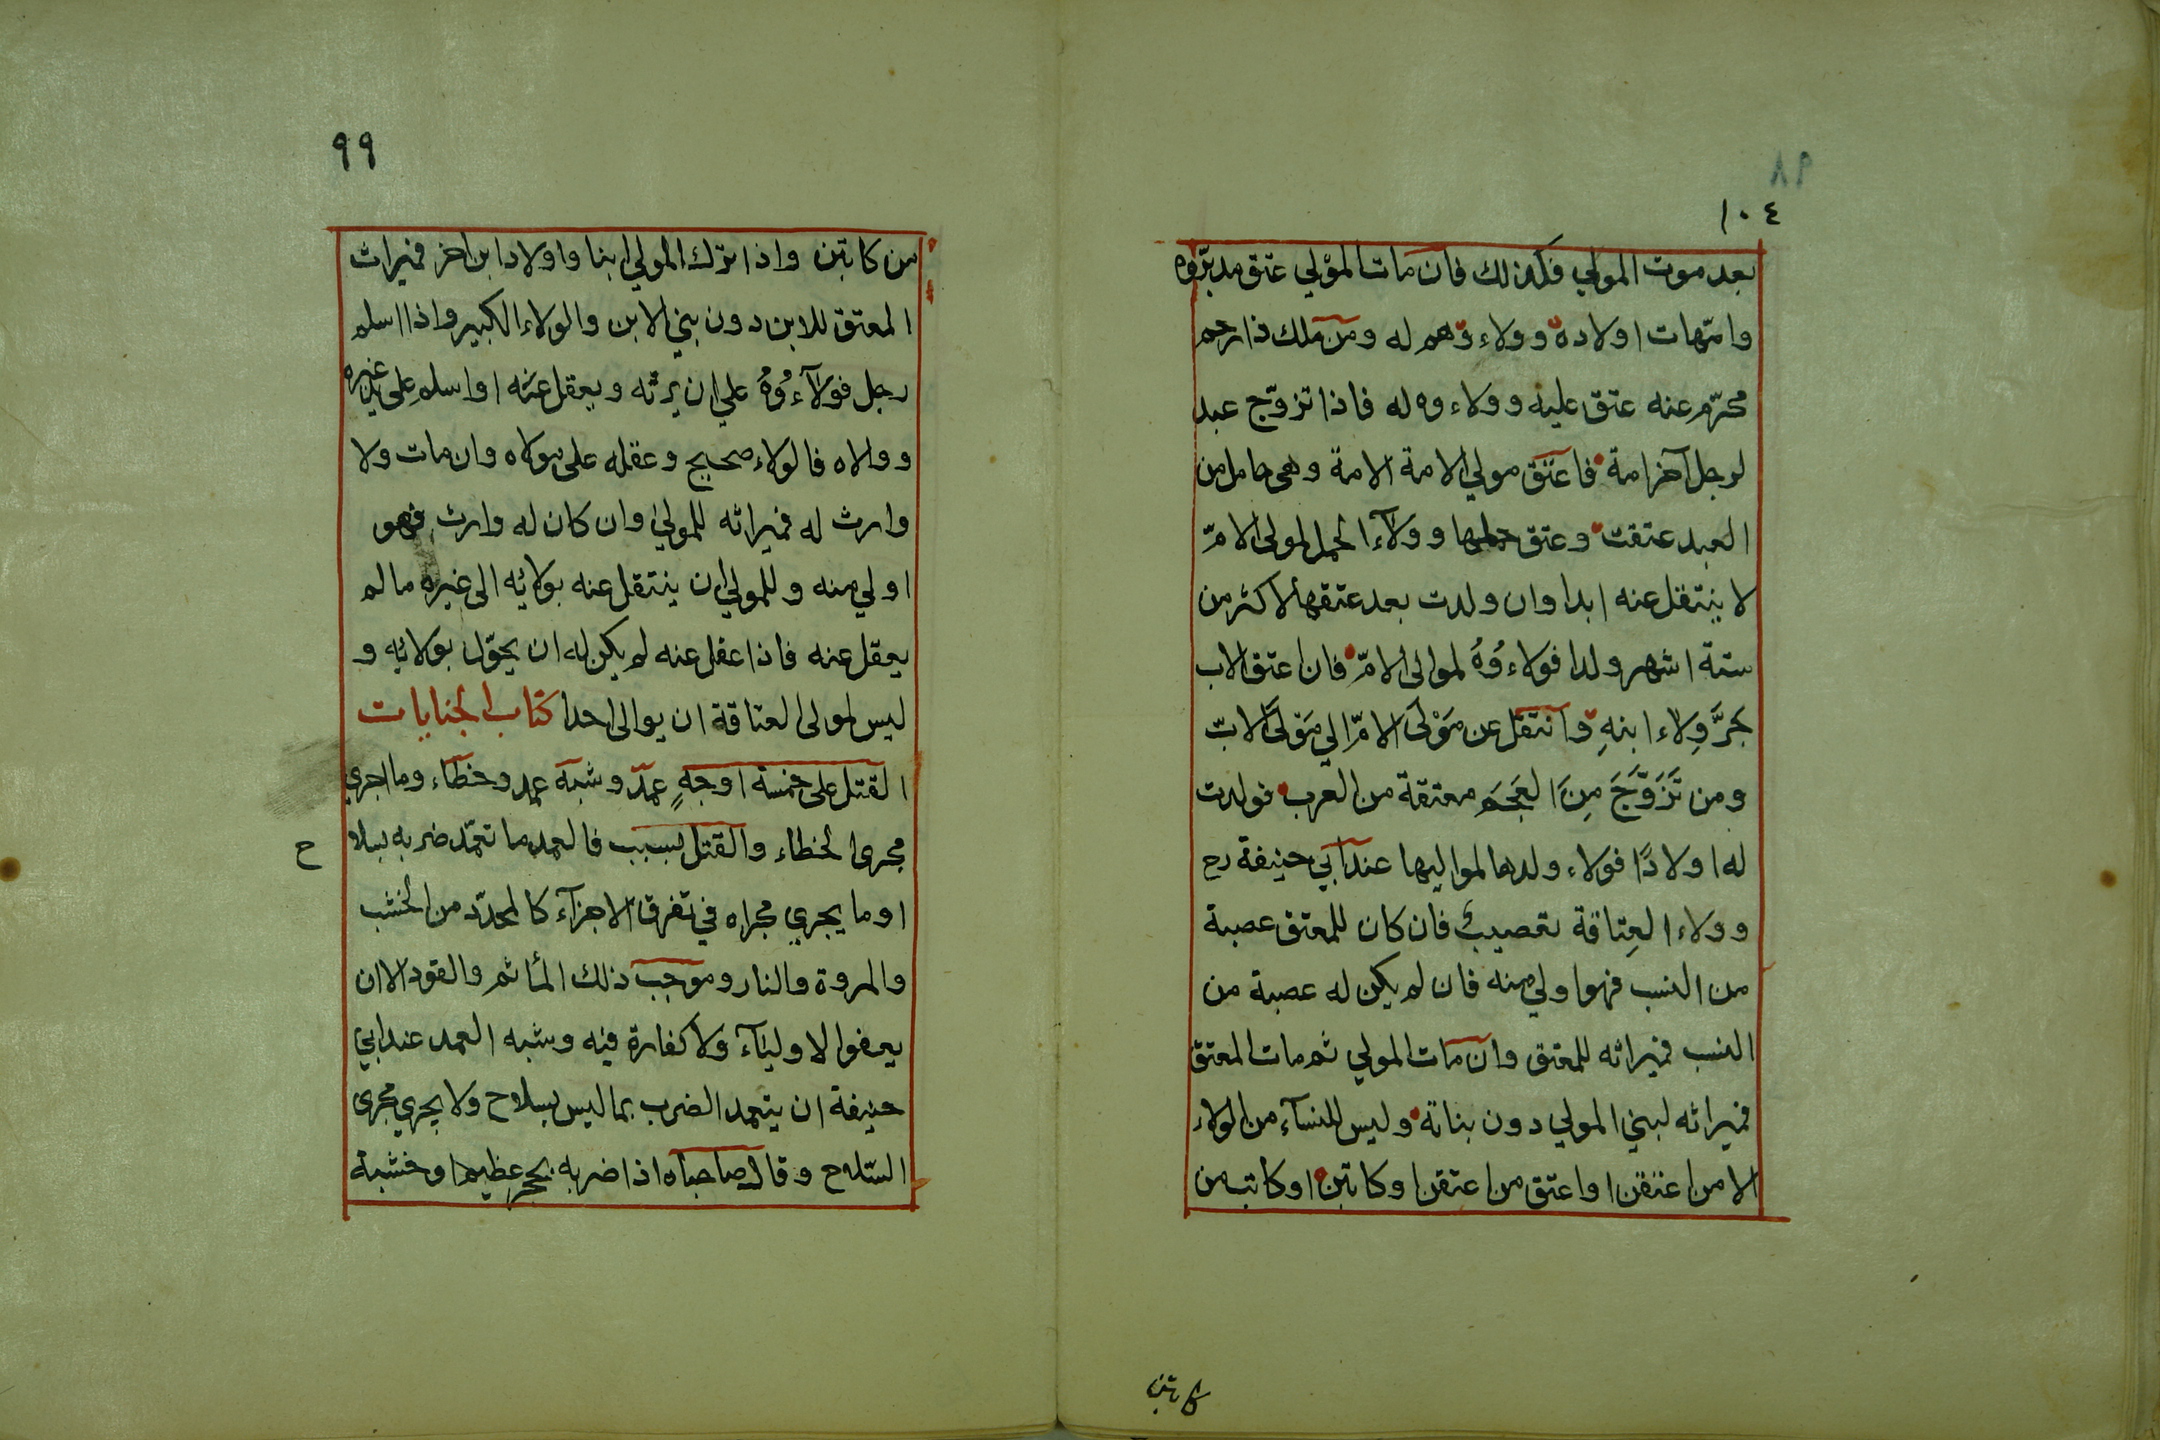 ٩٨
١٠٤
بعد موت المولي فكذلك فان مات المؤلي عتق مدبّروه
وامّهات اولاده وولاءوهم له ومن ملك ذا رحم
محرّم عنه عتق عليه وولاءوه له فاذا تزوّج عبد
لرجل آخر امة فاعتق مولي الامة الامة وهى حامل من
العبد عتقت وعتق حملها وولآء الحمل لمولى الامّ
لا ينتقل عنه ابدا وان ولدت بعد عتقها لاكثر من
ستة اشهر ولدا فولاءوُهُ لموالى الامّ فان اعتق الاب
جرَّ وِلاء ابنهِ وانتقل عن مَوْلَى الامّ الي مَوْلَى الابّ
ومن تَزَوَّجَ مِنَ العَجَمِ معتقة من العرب فولدت
له اولادًا فولاء ولدها لمواليها عند ابي حنيفة رح
وولاء العِتاقة تعصيبٌ فان كان للمعتق عصبة
من النسب فهو اولي منه فان لم يكن له عصبة من
النسب فميراثه للمعتق وان مات المولي ثم مات المعتق
فميراثه لبني المولي دون بناته وليس للنسآء من الولاء
الا من اعتقن او اعتق من اعتقن او كاتبن او كاتب من
كاتبن
٩٩
من كاتبن واذا ترك المولي ابنا واولاد ابن اخر فميراث
المعتق للابن دون بني الابن والولاء الكبير واذا اسلم
رجل فولآءوُهُ علي ان يرثه ويعقل عنه او اسلم على يد غيره
ووالاه فالولاء صحيح وعقله على مولاه وان مات ولا
وارث له فميراثه للمولي وان كان له وارث فهو
اولي منه وللمولي ان ينتقل عنه بولائه الى غيره ما لم
يعقل عنه فاذا عقل عنه لم يكن له ان يحوّل بولائه و
ليس لمولى العتاقة ان يوالى احدا كتاب الجنايات
القتل على خمسة اوجهٍ عمد وشبه عمد وخطاء وما اجري
مجرى الخطاء والقتل بسبب فالعمد ما تعمّد ضربه بسلا
ح
او ما يجري مجراه في تفرق الاجزآء كالمحدّد من الخشب
والمروة والنار وموجب ذلك المأثم والقود الا ان
يعفوا الاوليآء ولا كفارة فيه وشبه العمد عند ابي
حنيفة ان يتعمد الضرب بما ليس بسلاح ولا يجري مجرى
السّلاح وقال صاحباه اذا ضربه بحجر عظيم او خشبة